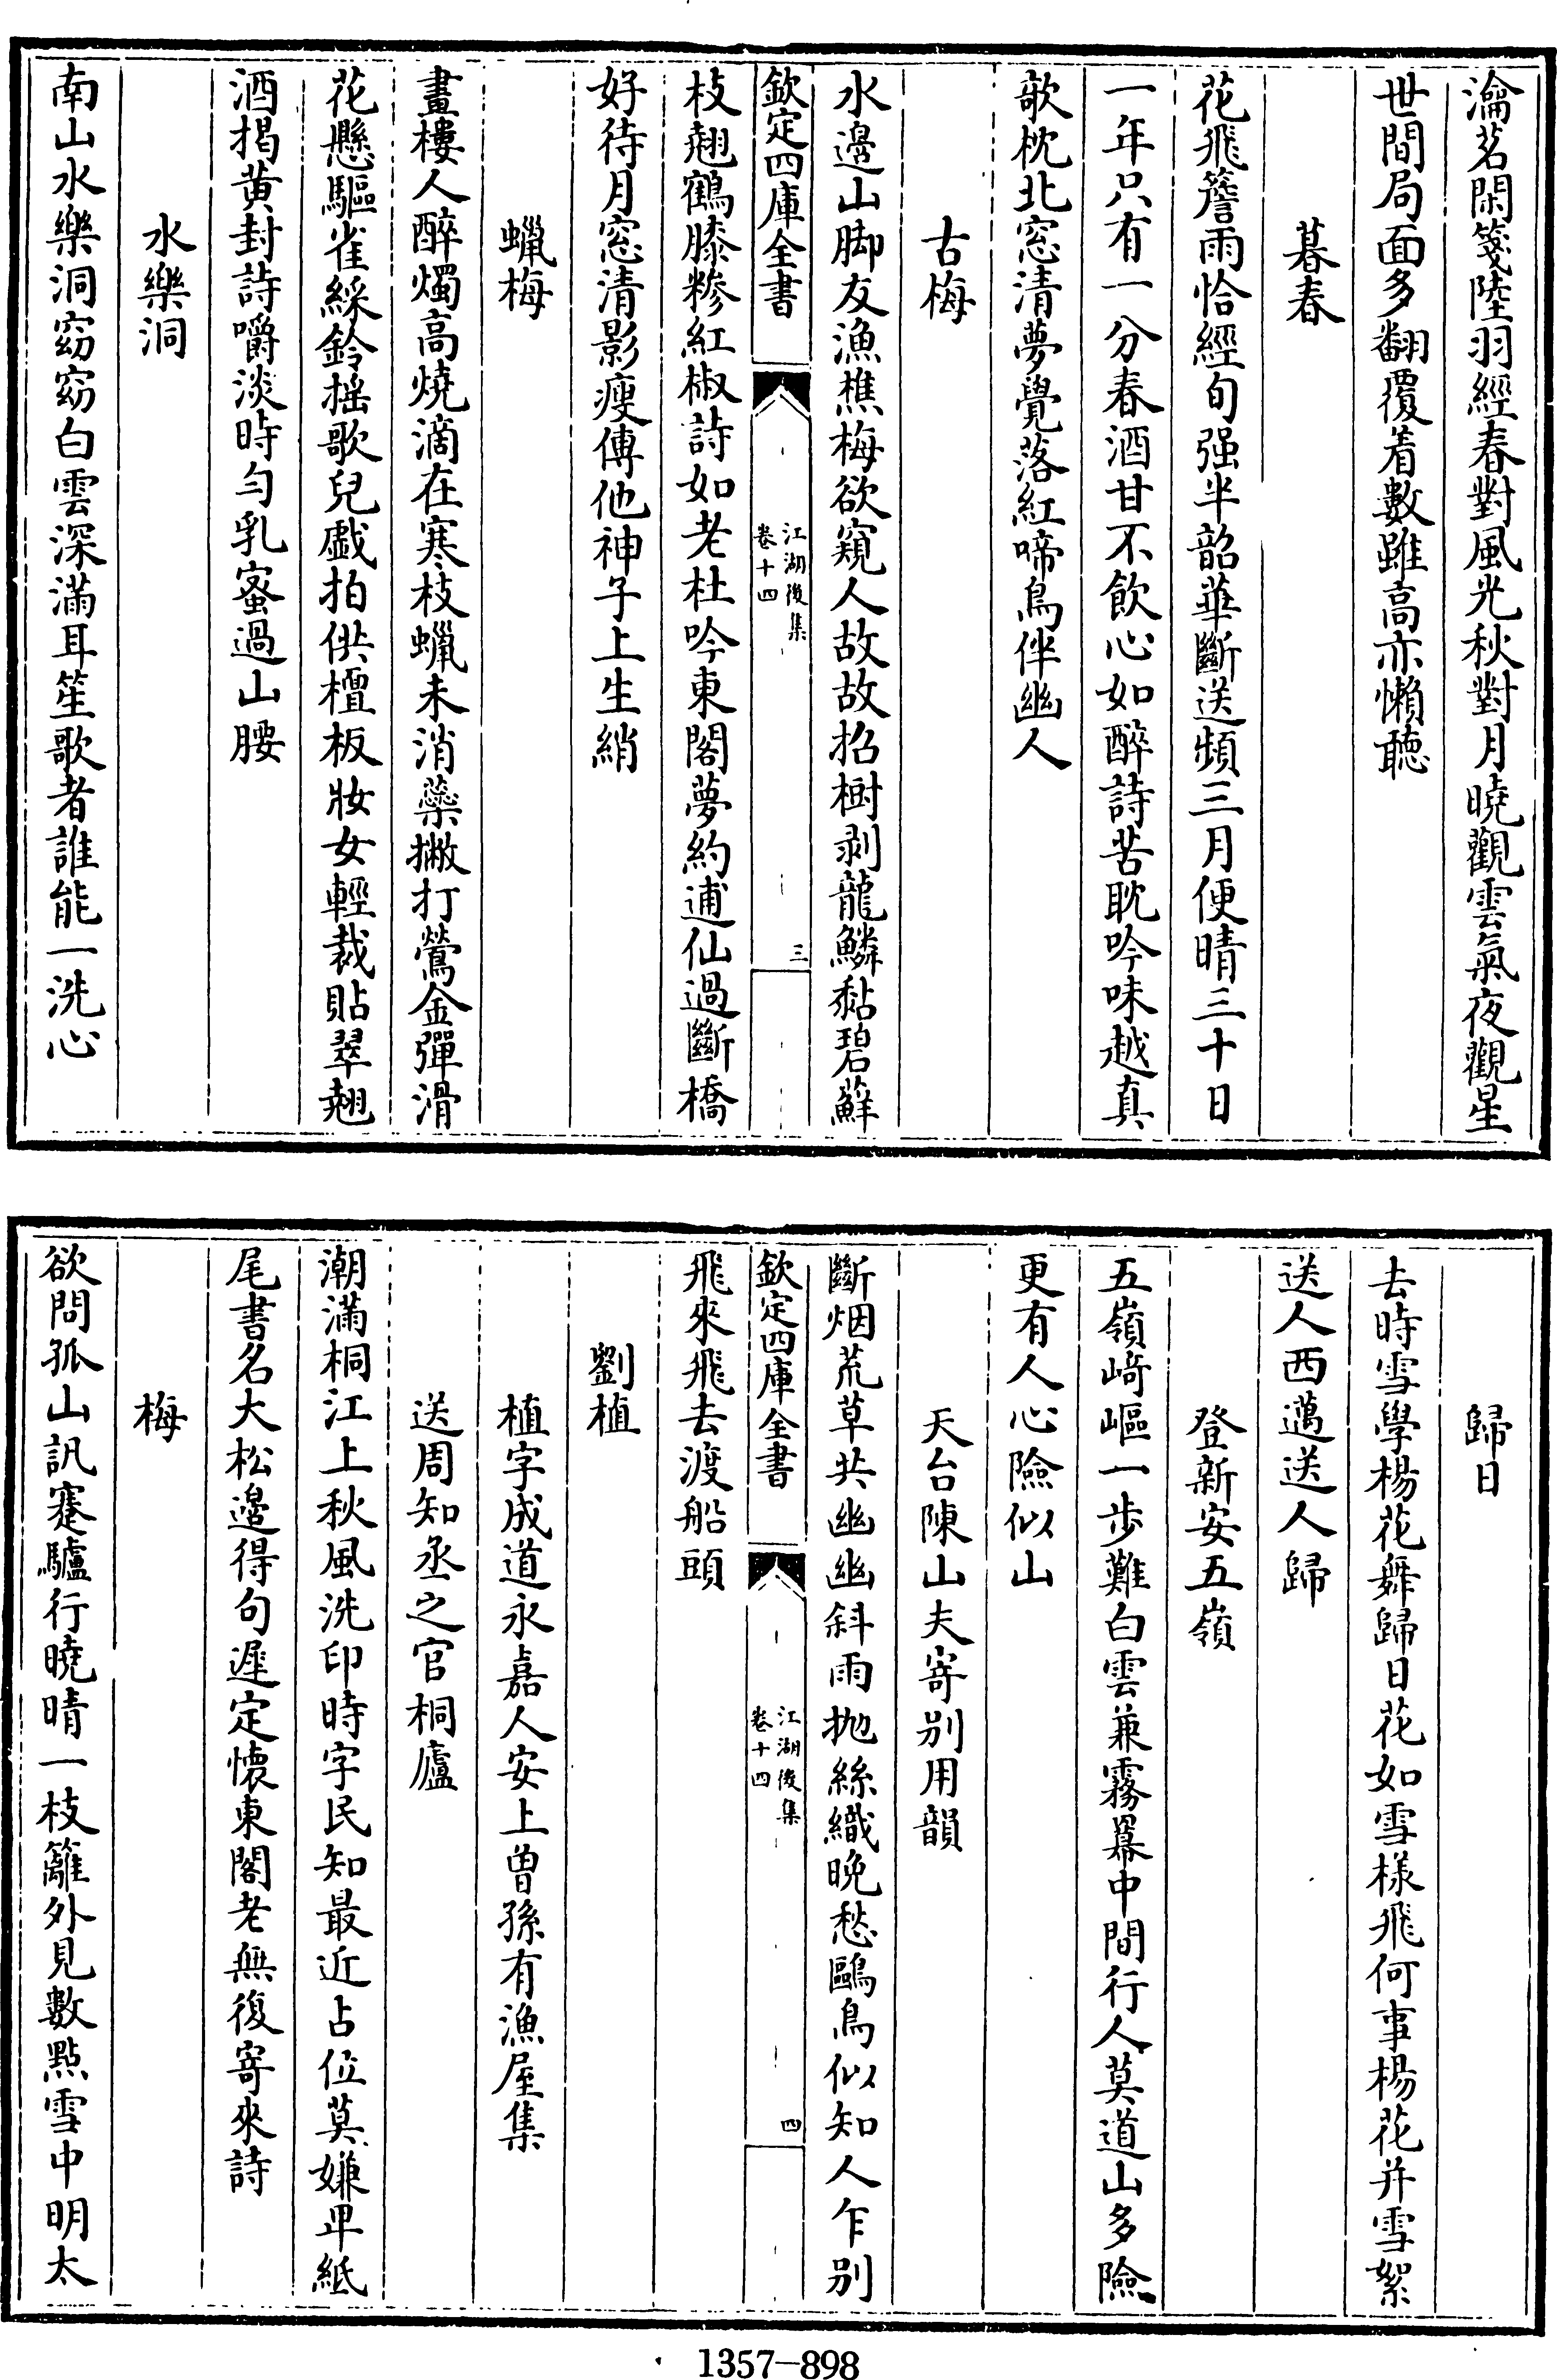 瀹茗閑箋陸羽經春對風光秋對月曉觀雲氣夜觀星
世間局面多翻覆着數雖高亦懶聽
暮春
花飛簷雨恰經旬强半韶華斷送頻三月便晴三十日
一年只有一分春酒甘不飲心如醉詩苦耽吟味越真
欹枕北窓清夢覺落紅啼鳥伴幽人
古梅
水邉山脚友漁樵梅欲窺人故故招樹剥龍鱗黏碧蘚
欽定四庫全書
江湖後集
卷十四
三
枝翹鶴膝糝紅椒詩如老杜吟東閣夢約逋仙過斷橋
好待月窓清影瘦傅他神子上生綃
蠟梅
畫樓人醉燭高燒滴在寒枝蠟未消蘂撇打鶯金彈滑
花懸驅雀綵鈴揺歌兒戯拍供檀板妝女輕裁貼翠翹
酒揭黄封詩嚼淡時勻乳蜜過山腰
水樂洞
南山水樂洞窈窈白雲深滿耳笙歌者誰能一洗心
歸日
去時雪學楊花舞歸日花如雪樣飛何事楊花并雪絮
送人西邁送人歸
登新安五嶺
五嶺﨑嶇一步難白雲兼霧羃中間行人莫道山多險
更有人心險似山
天台陳山夫寄别用韻
斷烟荒草共幽幽斜雨抛絲織晚愁鷗鳥似知人乍别
欽定四庫全書
江湖後集
卷十四
四
飛來飛去渡船頭
劉植
植字成道永嘉人安上曾孫有漁屋集
送周知丞之官桐廬
潮滿桐江上秋風洗印時字民知最近占位莫嫌卑紙
尾書名大松邉得句遲定懷東閣老無復寄來詩
梅
欲問孤山訊蹇驢行曉晴一枝籬外見數點雪中明太
1357-898